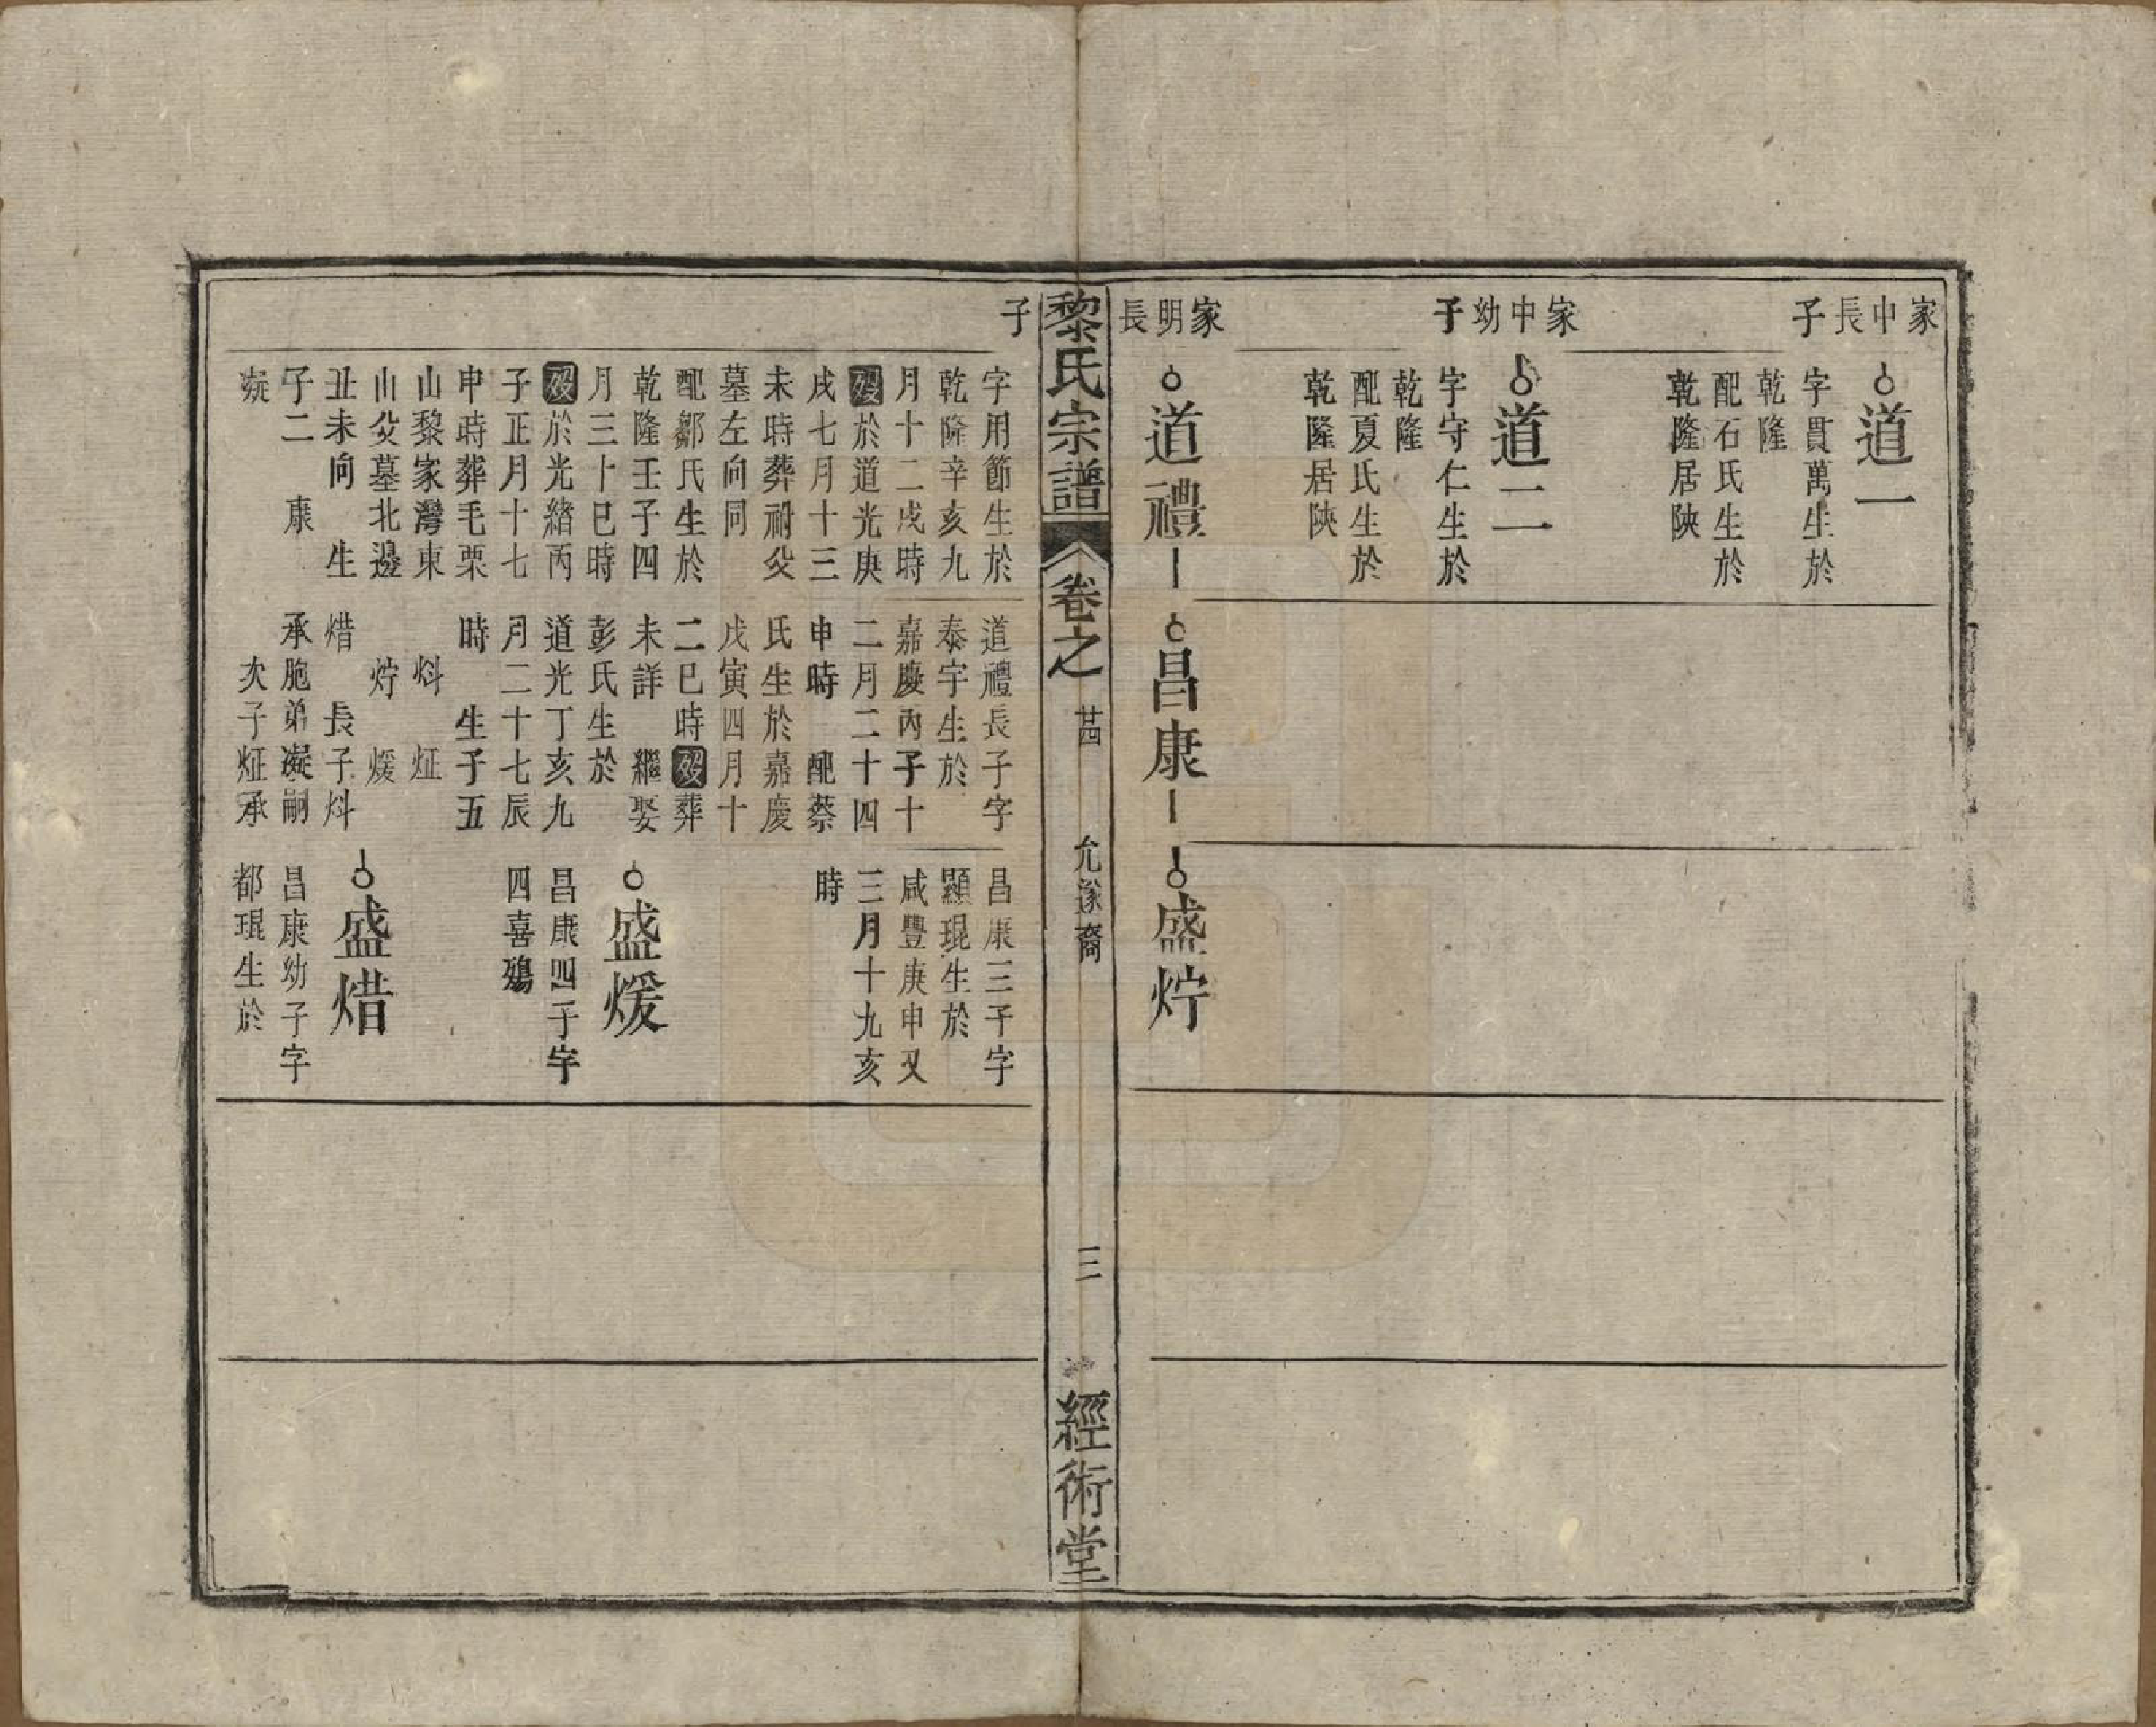 家中長子
道一
字貫萬生於
乾隆
配石氏生於
乾隆居陝
家中幼子
道二
字守仁生於
乾隆
配夏氏生於
乾隆居陝
家明長
道禮
昌康
盛㶉
黎氏宗譜
卷之
廿四
允遂裔
三
經術堂
子
字用節生於
乾隆辛亥九
月十二戌時
歿於道光庚
戌七月十三
未時葬祔父
墓左向同
配鄒氏生於
乾隆壬子四
月三十巳時
歿於光緒丙
子正月十七
申時葬毛栗
山黎家灣東
山父墓北邊
丑未向　生
子二　康
凝
道禮長子字
泰宇生於
嘉慶丙子十
二月二十四
申時　配蔡
氏生於嘉慶
戊寅四月十
二巳時歿葬
未詳　繼娶
彭氏生於
道光丁亥九
月二十七辰
時　生子五
炓　炡
煖
㷿　長子炓
承胞弟凝嗣
次子炡承
昌康三子字
顯琨生於
咸豐庚申又
三月十九亥
時
盛煖
昌康四子字
四喜殤
盛㷿
昌康幼子字
都琨生於